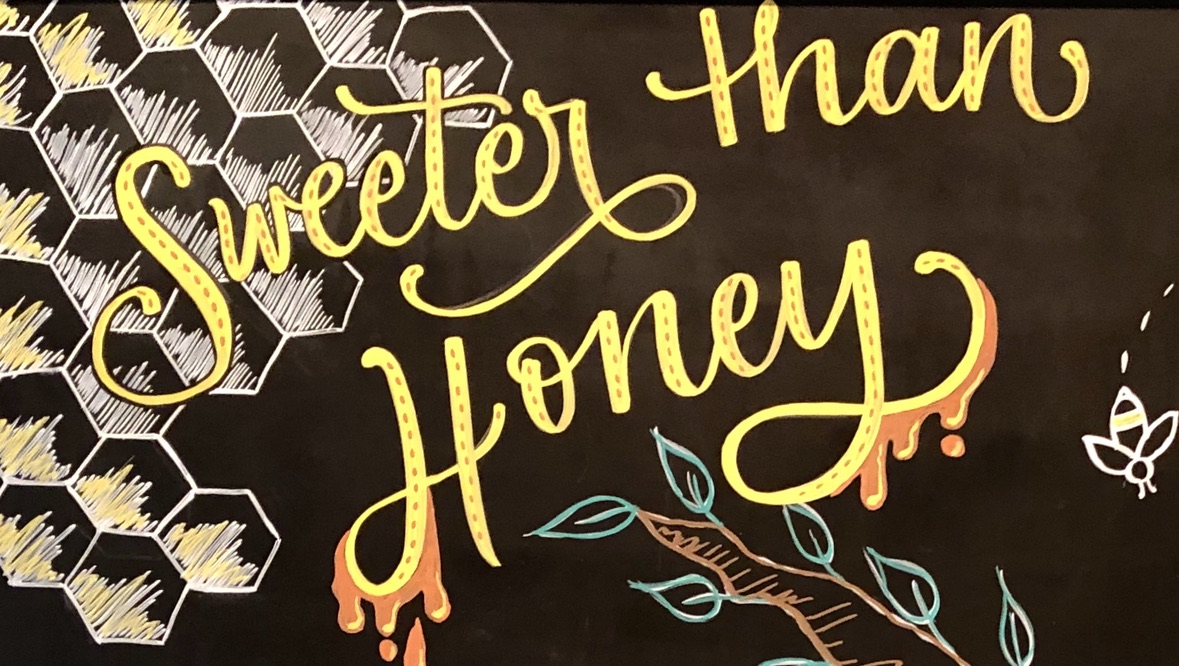 Sweeter than
Honey